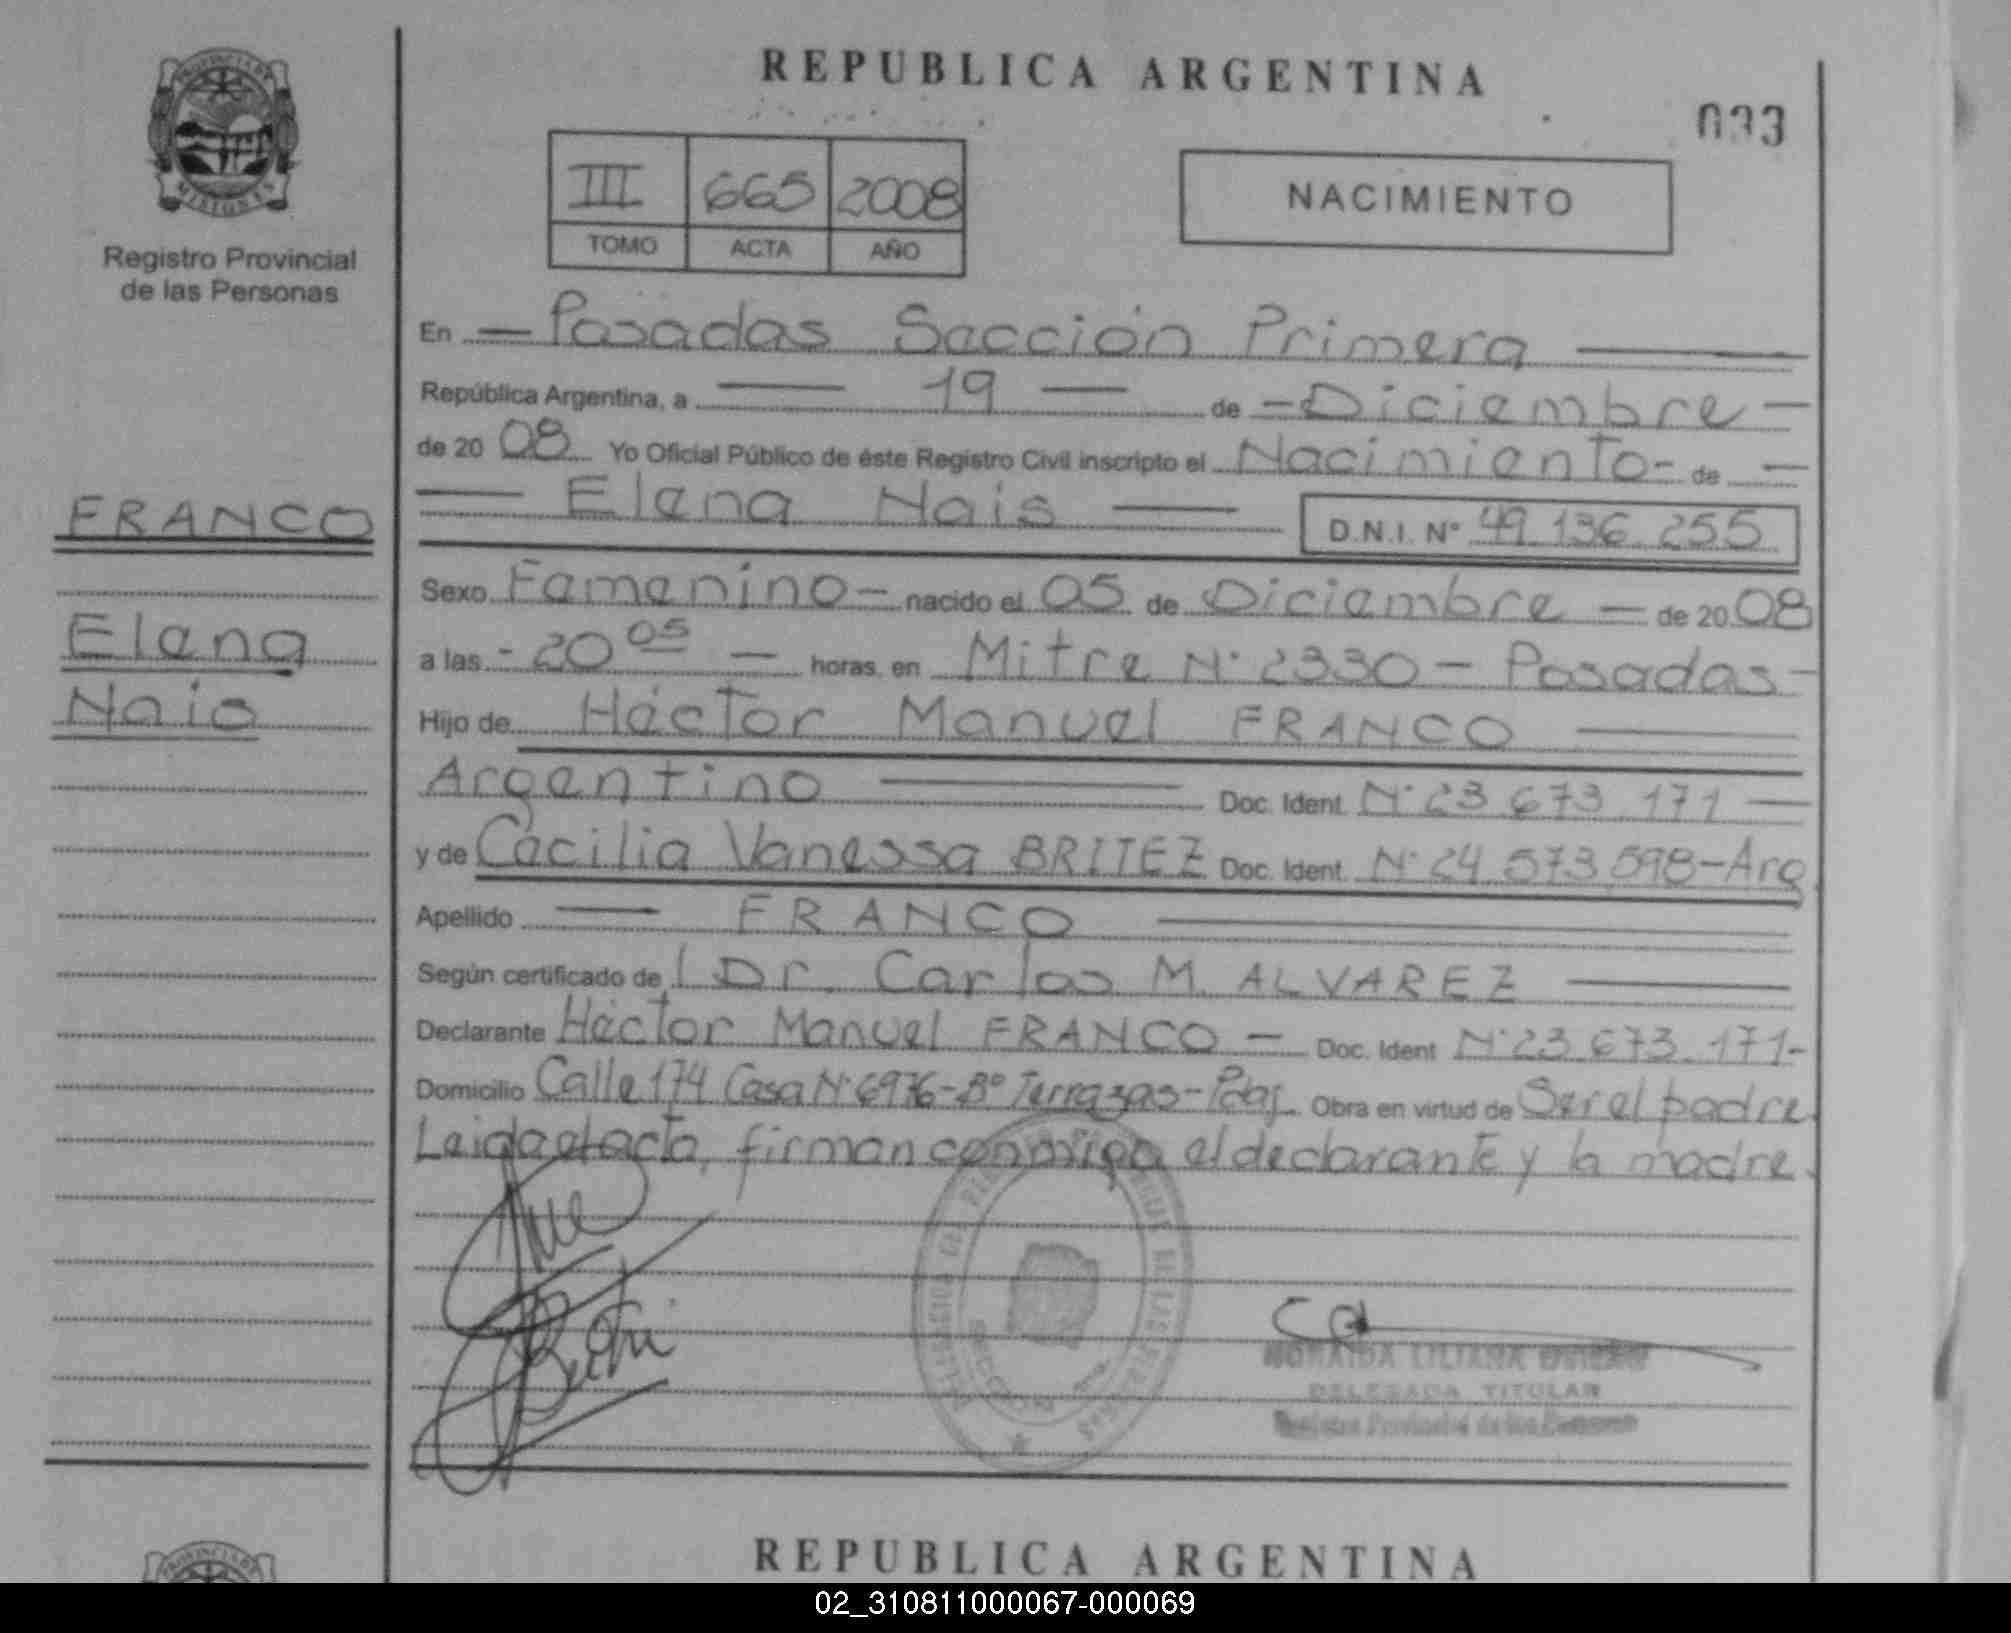 REPUBLICA ARGENTINA
033
PROVINCIA DE
MISIONES
Registro Provincial
de las Personas
III 665 2008
TOMO ACTA AÑO
NACIMIENTO
En — Posadas Sección Primera —
República Argentina, a — 19 — de — Diciembre —
de 20 08 Yo Oficial Público de éste Registro Civil inscripto el Nacimiento - de —
— Elena Nais — D.N.I. Nº 49.136.255
FRANCO
Elena
Nais
Sexo Femenino — nacido el 05 de Diciembre — de 20 08
a las - 20 05 — horas, en Mitre Nº 2330 - Posadas -
Hijo de Héctor Manuel FRANCO —
Argentino — Doc. Ident. Nº 23.673.171 —
y de Cecilia Vanessa BRITEZ Doc. Ident. Nº 24.573.598 - Arg
Apellido — FRANCO —
Según certificado de Dr. Carlos M. ALVAREZ —
Declarante Héctor Manuel FRANCO — Doc. Ident Nº 23.673.171-
Domicilio Calle 174 Casa Nº 6976 - Bº Terrazas - Pdas. Obra en virtud de Ser el padre.
Leida el acta, firman conmigo el declarante y la madre.
LILIANA
DELEGADA TITULAR
Registro Provincial de las Personas
REPUBLICA ARGENTINA
PROVINCIA DE
02_310811000067-000069